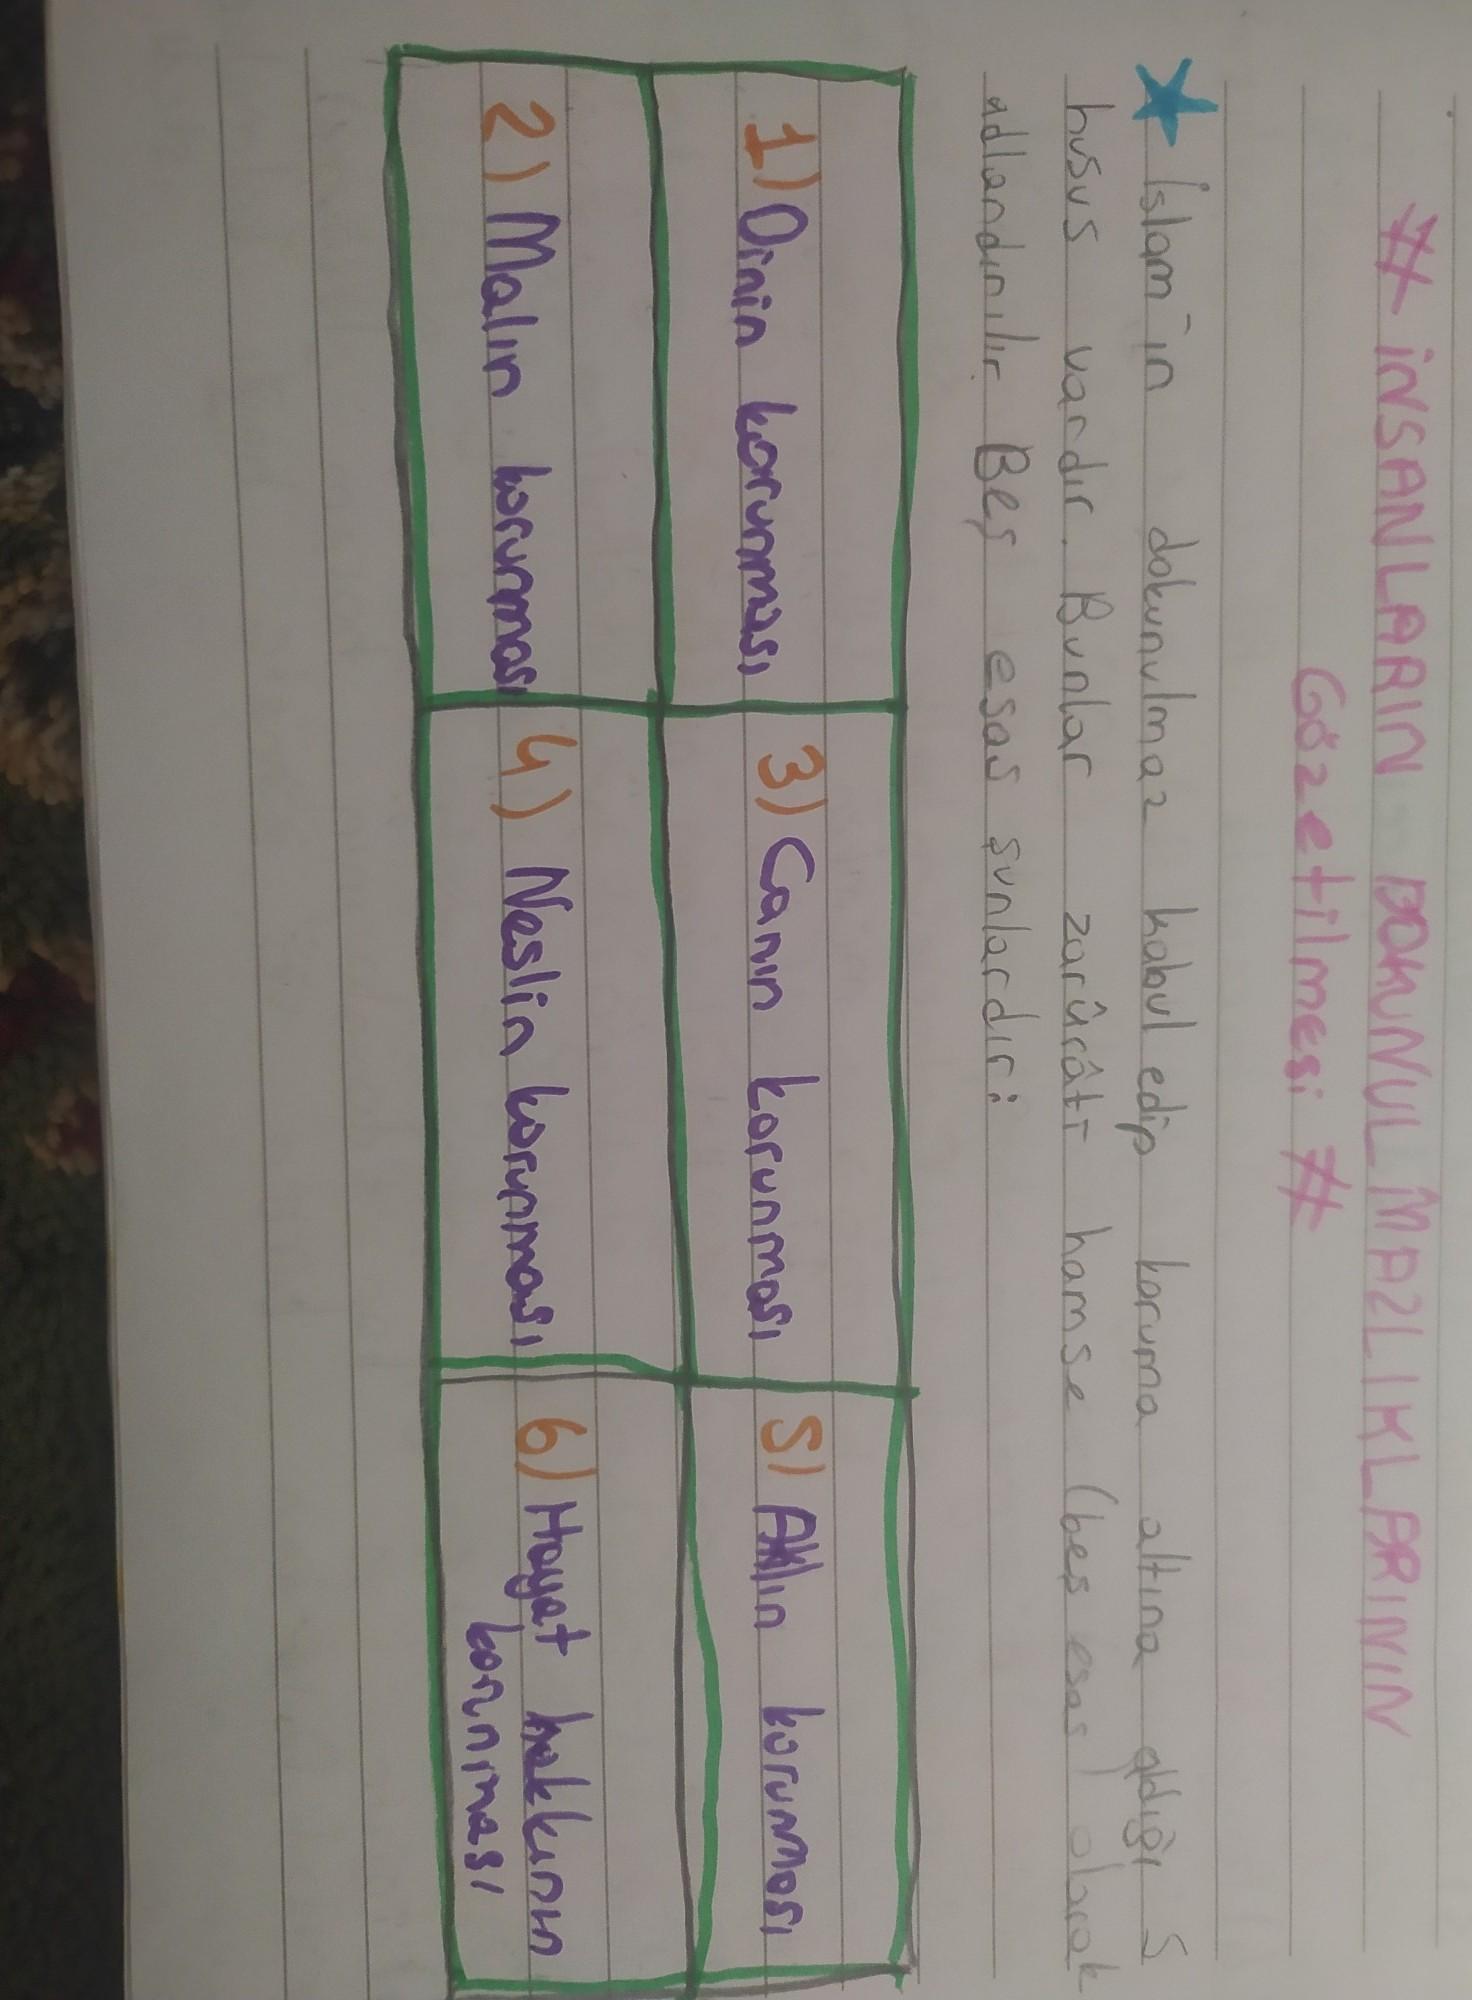 # İNSANLARIN DOKUNULMAZLIKLARININ
Gözetilmesi #
İslam'ın dokunulmaz kabul edip koruma altına aldığı 5
husus vardır. Bunlar zarûrâtı hamse (beş esas) olarak
adlandırılır. Beş esas şunlardır:
1) Dinin korunması
3) Canın korunması
5) Aklın korunması
2) Malın korunması
4) Neslin korunması
6) Hayat hakkının
korunması